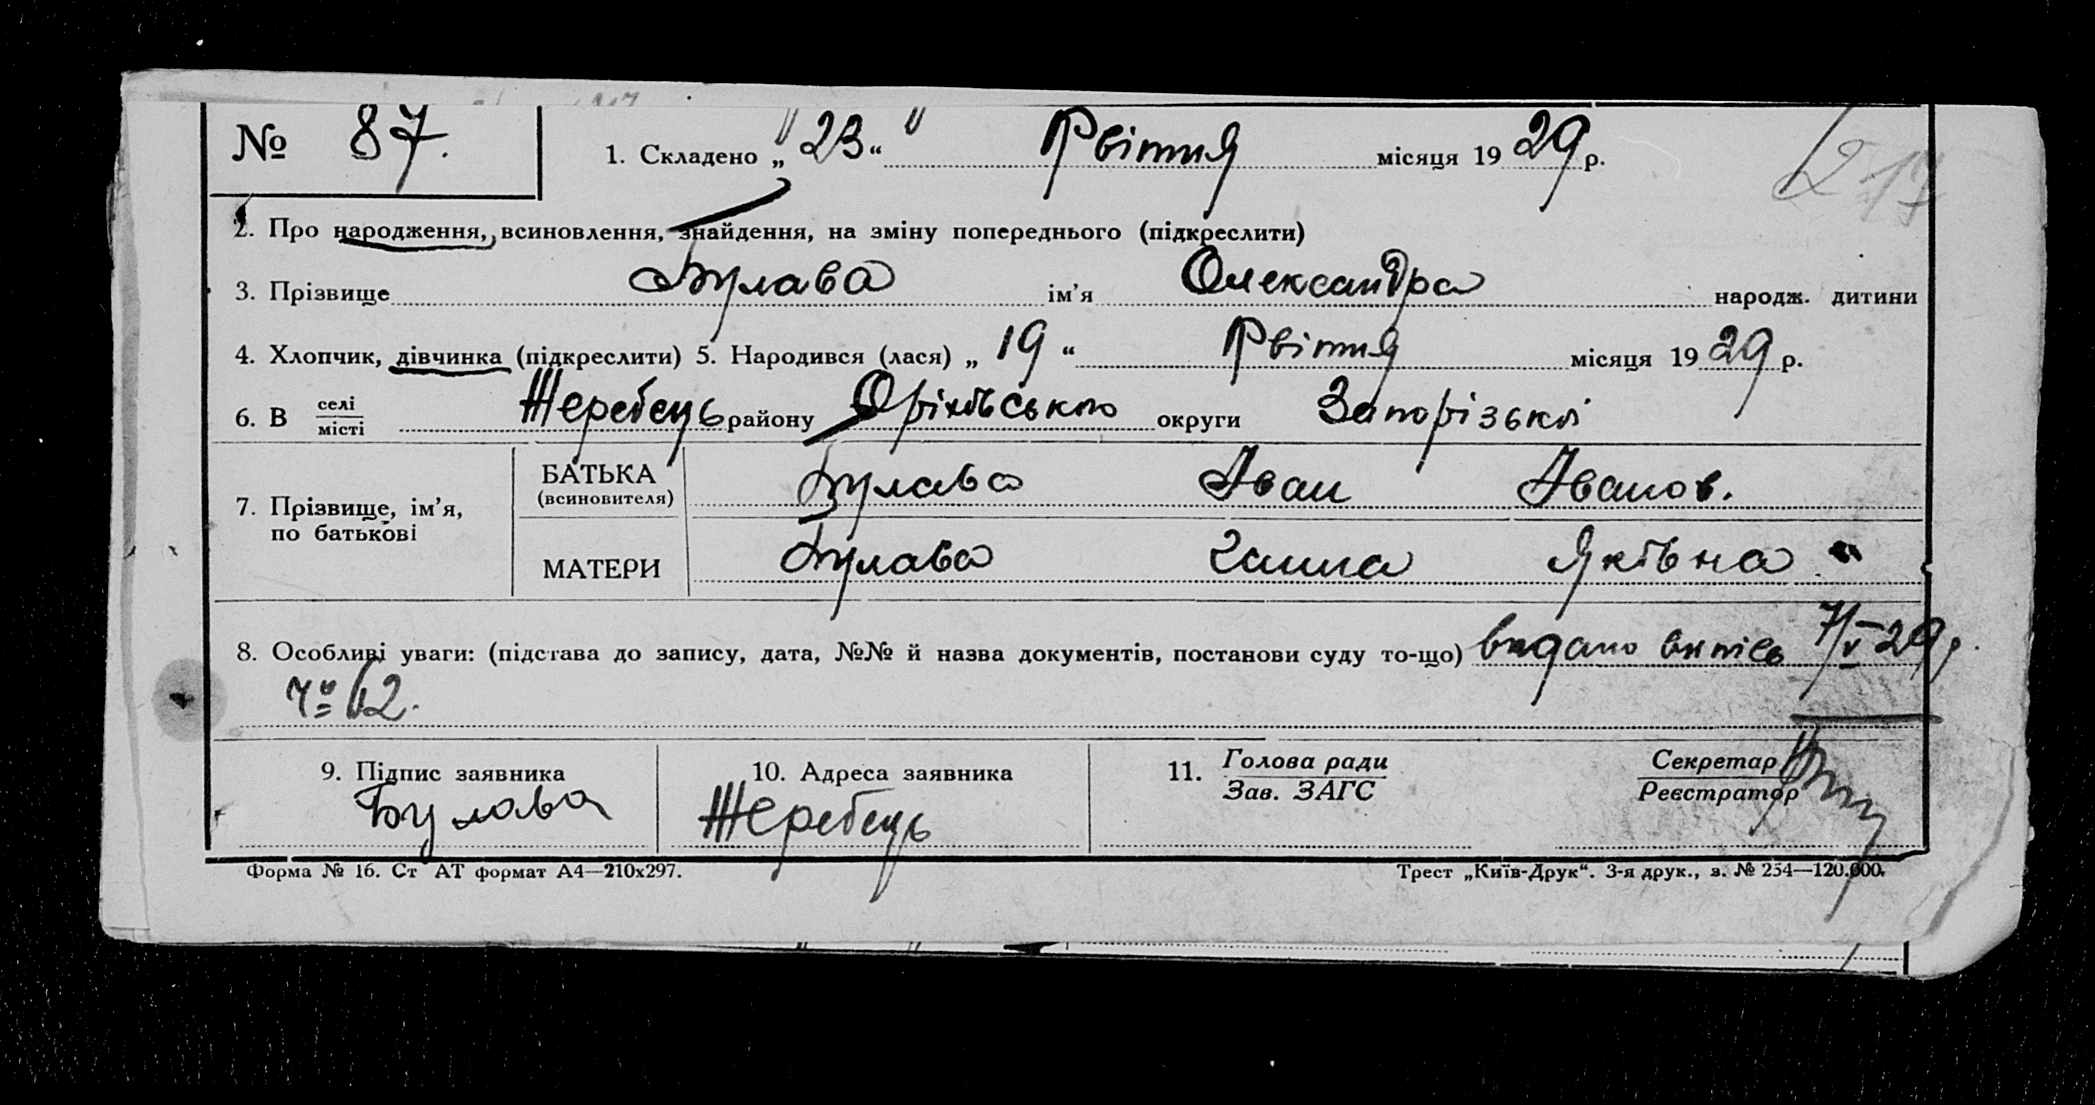 № 87. 1. Складено „ 23 “ Квітня місяця 19 29 р.
217
2. Про народження, всиновлення, знайдення, на зміну попереднього (підкреслити)
3. Прізвище Булава ім'я Олександра народж. дитини
4. Хлопчик, дівчинка (підкреслити) 5. Народився (лася) „ 19 “ Квітня місяця 19 29 р.
6. В селі/місті Жеребець району Оріхівського округи Запорізької
7. Прізвище, ім'я, по батькові
БАТЬКА (всиновителя) Булава Іван Іванов.
МАТЕРИ Булава Ганна Яківна
8. Особливі уваги: (підстава до запису, дата, №№ й назва документів, постанови суду то-що) видано випись 7/V 29 р.
№ 62.
9. Підпис заявника 10. Адреса заявника 11. Голова ради Секретар
Зав. ЗАГС Реєстратор
Булава Жеребець
Форма № 16. Ст АТ формат А4—210х297. Трест „Київ-Друк“. 3-я друк., з. № 254—120.000.